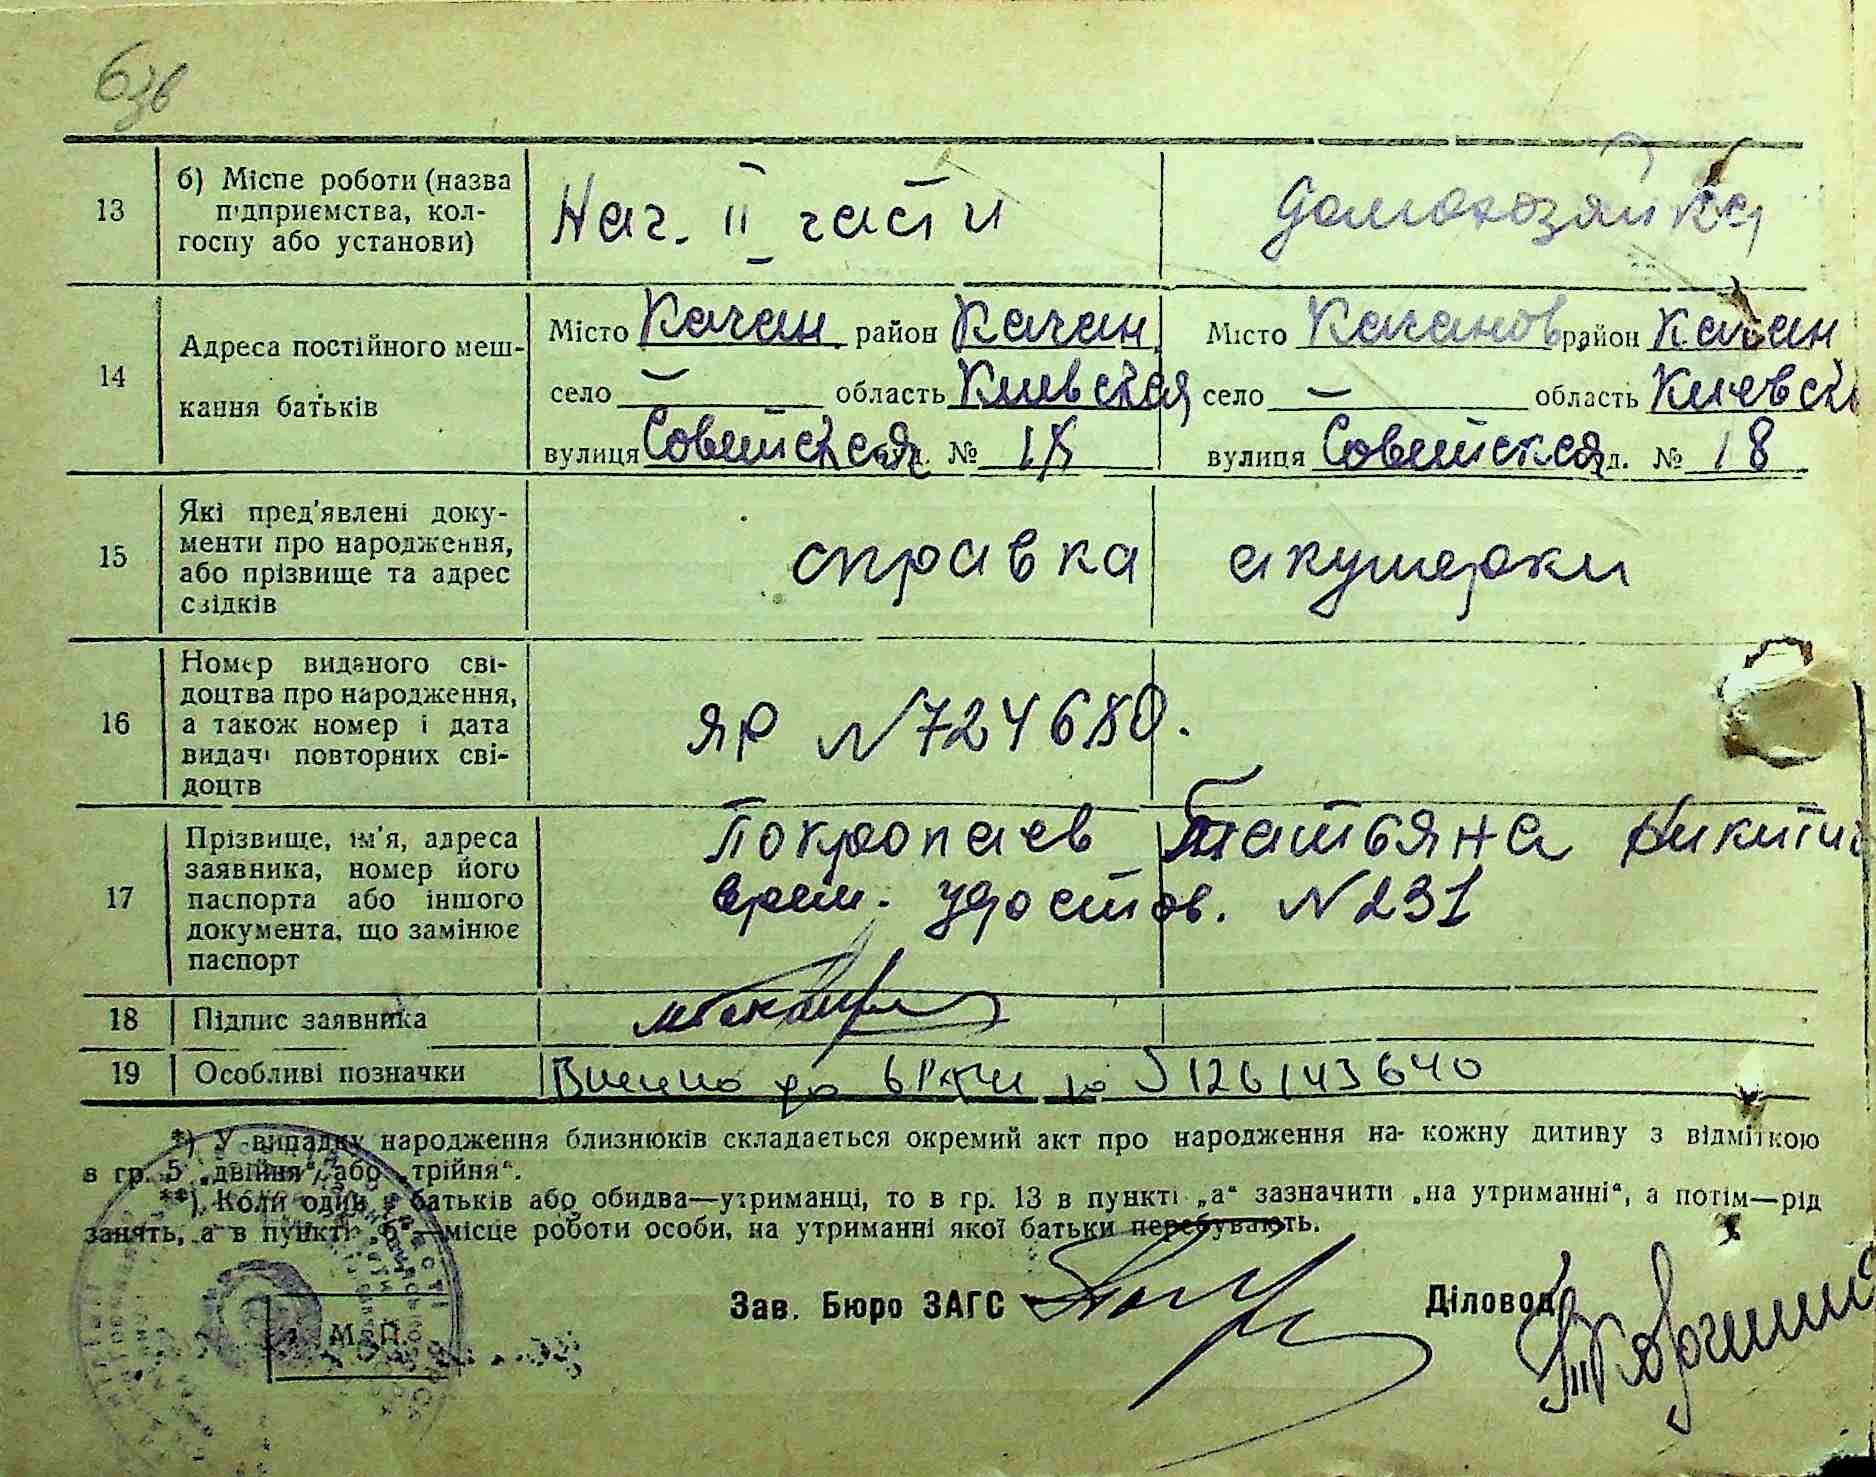 63в
13
б) Місце роботи (назва
підприємства, кол-
госпу або установи)
Нач. II части
домохозяйка
14
Адреса постійного меш-
кання батьків
Місто Качан район Качан
село — область Киевская
вулиця Советская буд. № 18
Місто Каганов район Каган
село — область Киевск
вулиця Советская д. № 18
15
Які пред'явлені доку-
менти про народження,
або прізвище та адрес
свідків
справка акушерки
16
Номер виданого сві-
доцтва про народження,
а також номер і дата
видачі повторних сві-
доцтв
ЯР N 724680.
17
Прізвище, ім'я, адреса
заявника, номер його
паспорта або іншого
документа, що замінює
паспорт
Татьяна Никити
врем. удостов. N 231
18
Підпис заявника
19
Особливі позначки
5126143640
*) У випадку народження близнюків складається окремий акт про народження на- кожну дитину з відміткою
в гр. 5 „двійня“, або „трійня“.
**) Коли один з батьків або обидва—утриманці, то в гр. 13 в пункті „а“ зазначити „на утриманні“, а потім—рід
занять, а в пункті „б“—місце роботи особи, на утриманні якої батьки перебувають.
Зав. Бюро ЗАГС
Діловод
М. П.